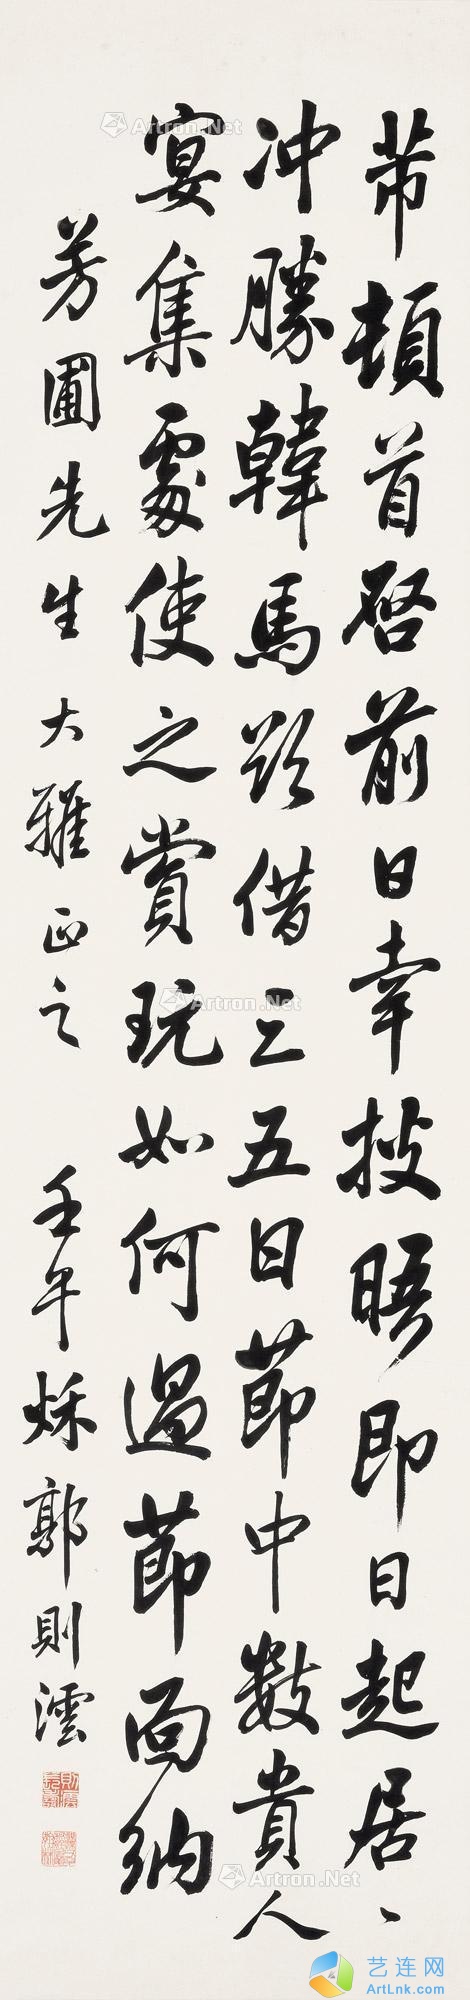 芾頓首启前日幸披晤即日起居、
冲勝韓馬欲借三五日節中數貴人
宴集處使之賞玩如何過節面納
芳圃先生大雅正之 壬午秌郭則澐
Artron.Net
Artron.Net
Artron.Net
Artron.Net
Artron.Net
Artron.Net
艺连网
ArtLnk.com